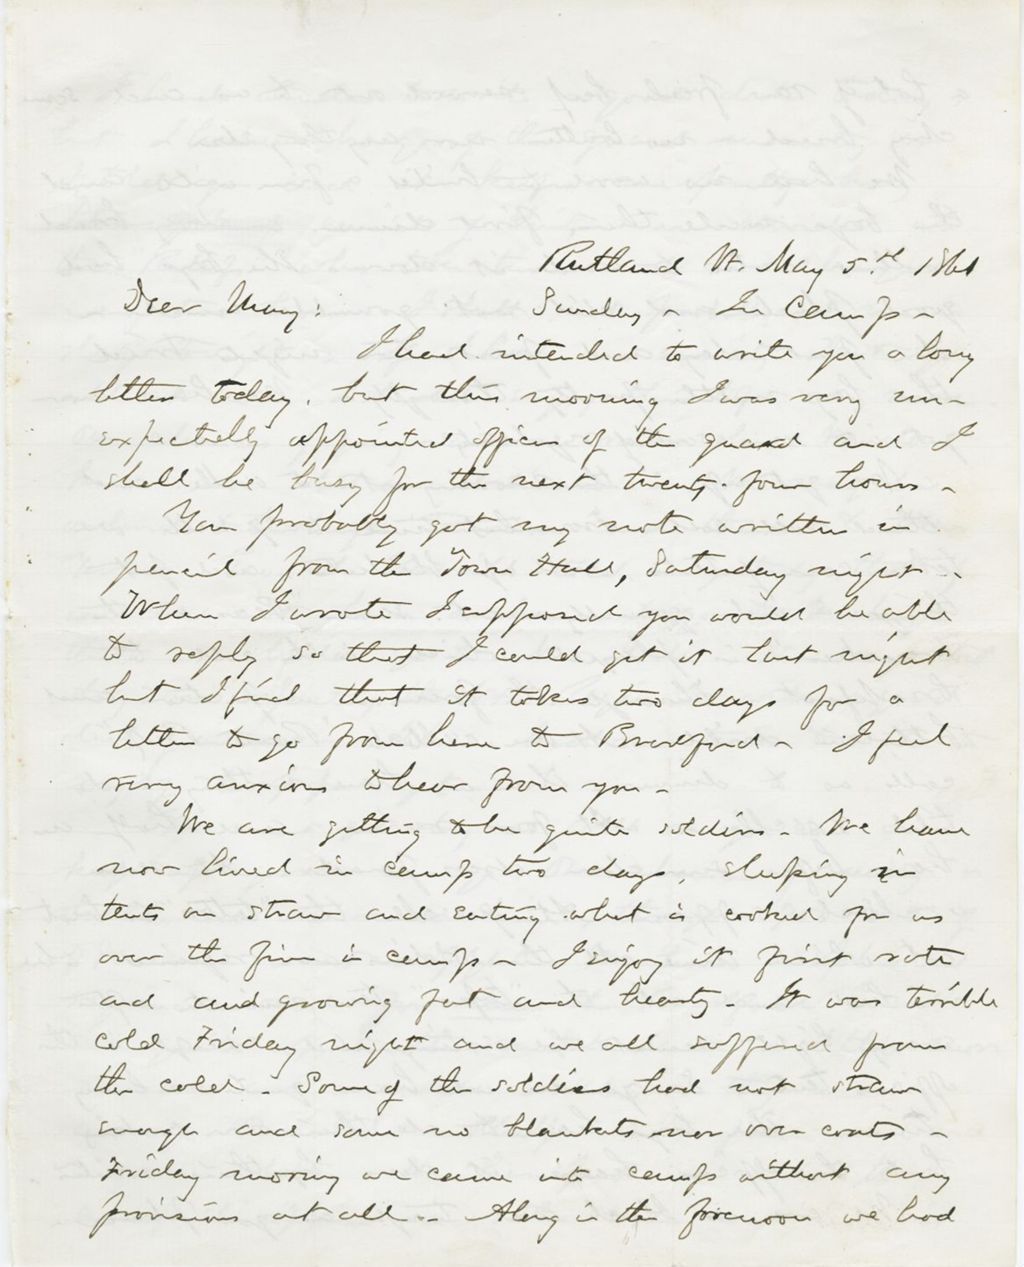 Rutland Vt. May 5th 1861
Dear Mary: Sunday - In Camp -
I had intended to write you a long
letter today, but this morning I was very un-
expectedly appointed officer of the guard and I
shall be busy for the next twenty-four hours -
You probably got my note written in
pencil from the Town Hall, Saturday night -
When I wrote I supposed you would be able
to reply so that I could get it last night
but I find that it takes two days for a
letter to go from here to Bradford - I feel
very anxious to hear from you -
We are getting to be quite soldiers - We have
now lived in camp two days, sleeping in
tents on straw and eating what is cooked for us
over the fire in camp - I enjoy it first rate
and and growing fat and hearty - It was terrible
cold Friday night and we all suffered from
the cold - Some of the soldiers had not straw
enough and some no blankets nor over coats -
Friday morning we came into camp without any
provisions at all - Along in the forenoon we had